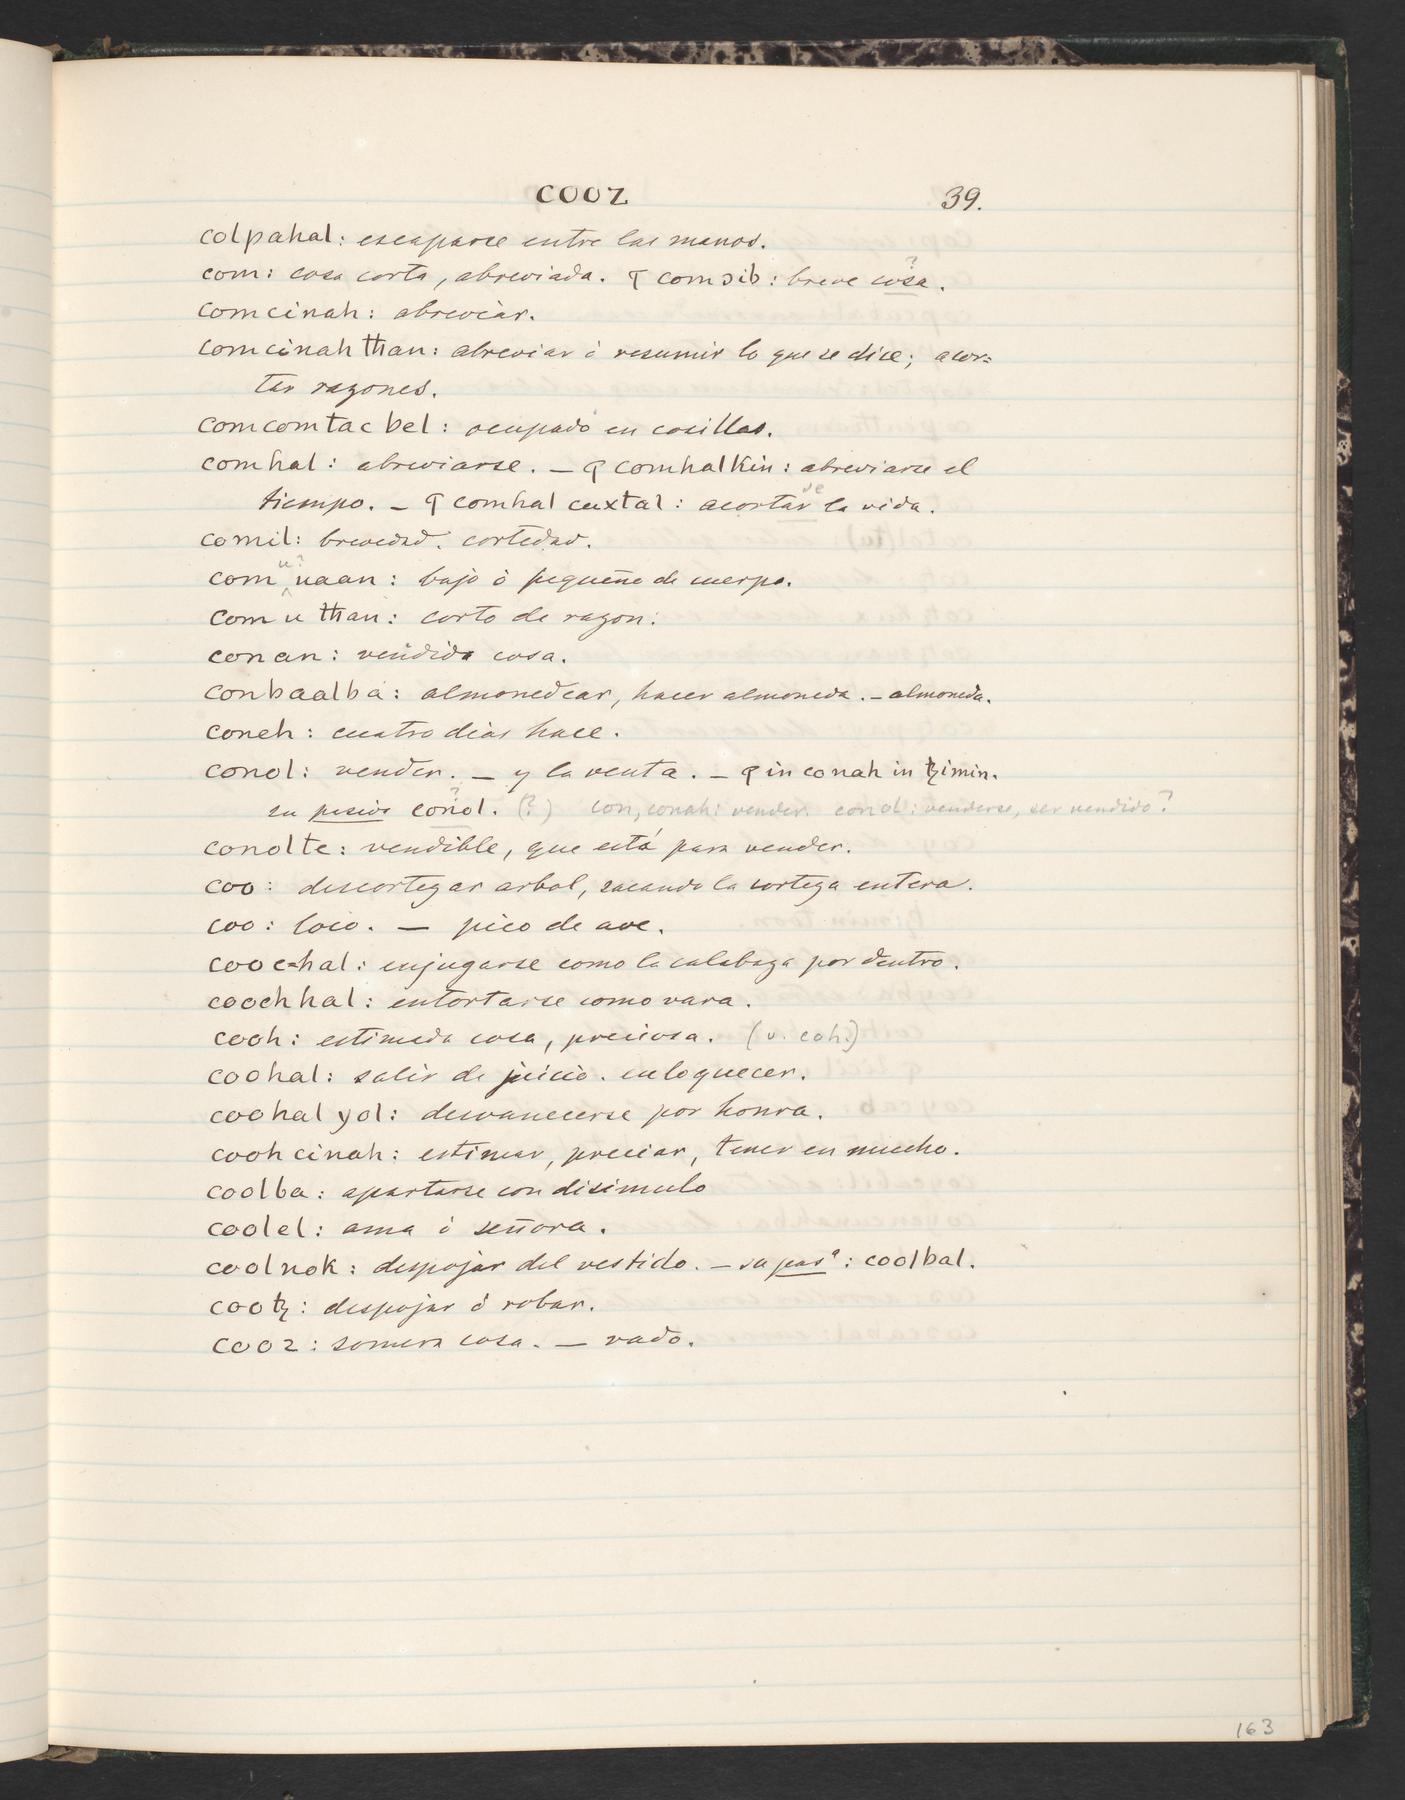 COOZ 39.
colpahal: escaparse entre las manos.
com: cosa corta, abreviada. ¶ com ɔib: breve cosa?.
comcinah: abreviar.
comcinah tħan: abreviar ó resumir lo que se dice; acor=
tar razones.
comcomtac bel: ocupado en cosillas.
comhal: abreviarse. — ¶ comhalkin: abreviarse el
tiempo. — ¶ comhal cuxtal: acortarse la vida.
comil: brevedad. cortedad.
com u? uaan: bajo ó pequeño de cuerpo.
com u tħan: corto de razon:
conan: vendida cosa.
conbaalba: almonedear, hacer almoneda. — almoneda.
coneh: cuatro dias hace.
conol: vender. — y la venta. — ¶ in conah in tzimin.
su pasivo conol?. (?) con, conah: vender. conol: venderse, ser vendido?
conolte: vendible, que está para vender.
coo: descortezar arbol, sacando la corteza entera.
coo: loco. — pico de ave.
cooc=hal: enjugarse como la calabaza por dentro.
coochhal: entortarse como vara.
cooh: estimada cosa, preciosa. (v. coh.)
coohal: salir de juicio. enloquecer.
coohal yol: desvanecerse por honra.
cooh cinah: estimar, preciar, tener en mucho.
coolba: apartarse con disimulo
coolel: ama ó señora.
coolnok: despojar del vestido. — su pas.º: coolbal.
cootz: despojar ó robar.
cooz: somera cosa. — vado.
163